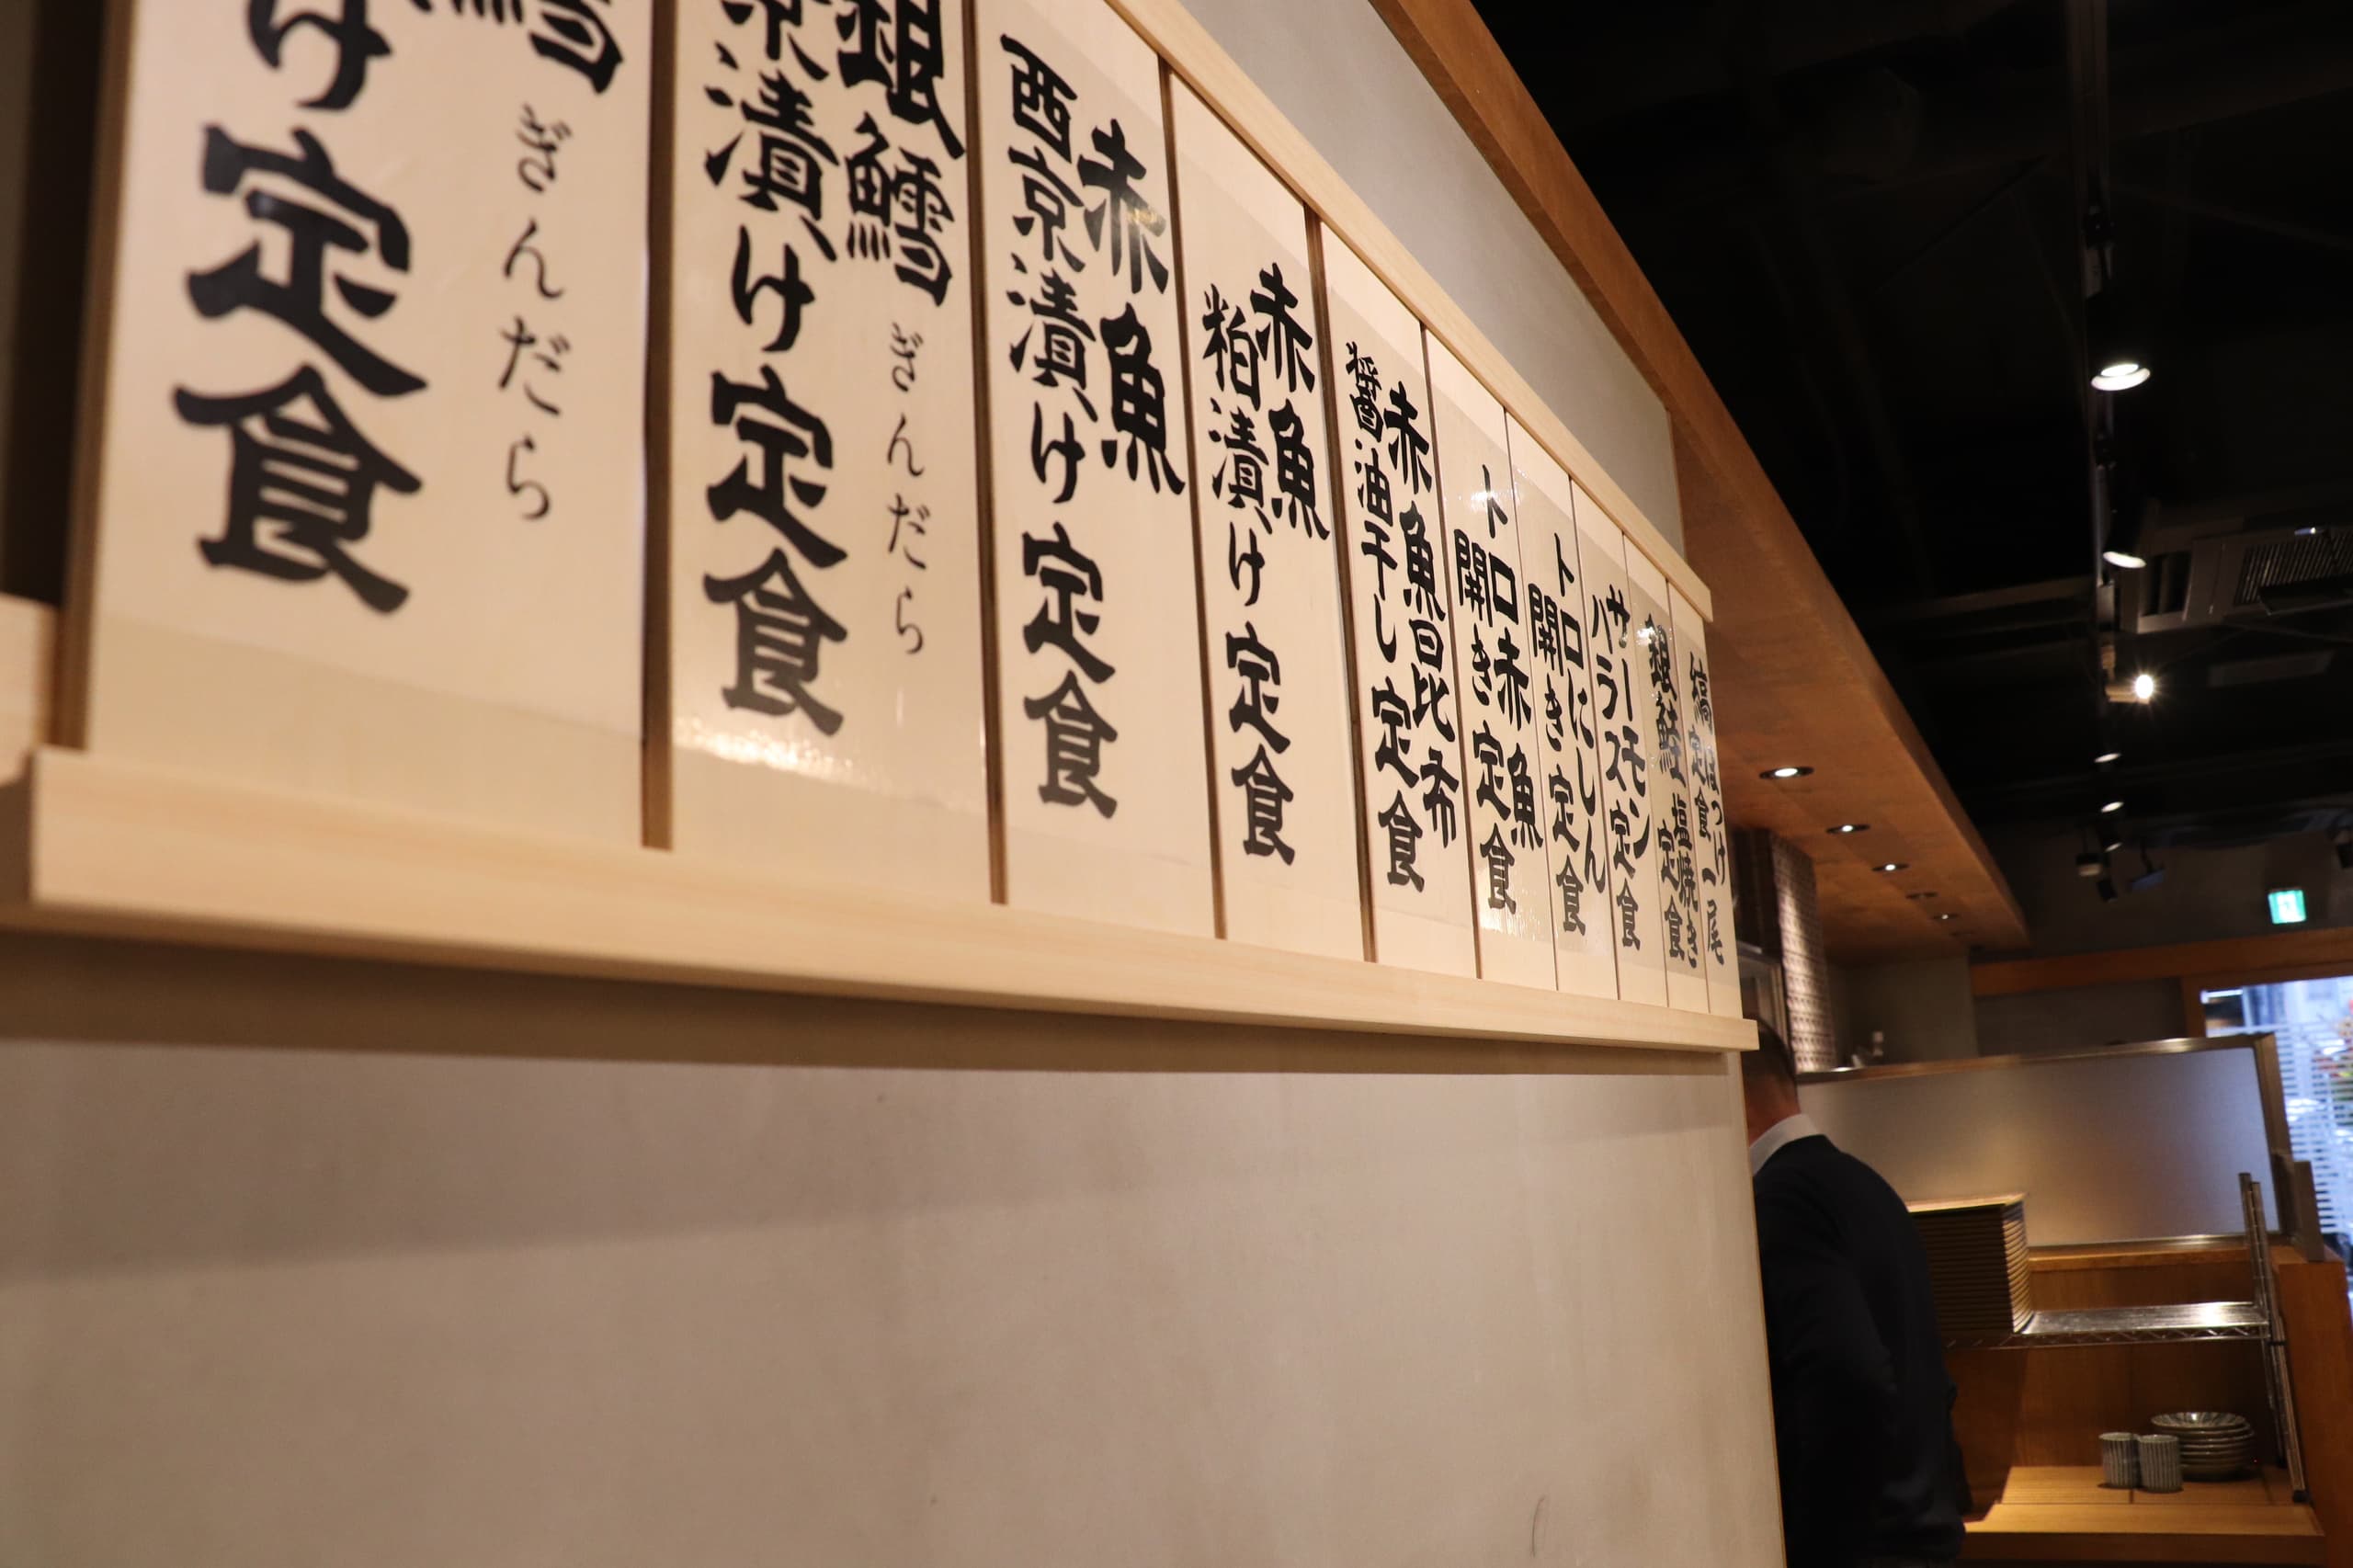 定食
銀鮭
塩焼き
定食
サーモン
ハラス定食
トロにしん
開き定食
トロ赤魚
開き定食
赤魚昆布
醤油干し定食
赤魚
粕漬け定食
赤魚
西京漬け定食
銀鱈ぎんだら
京漬け定食
鱈ぎんだら
け定食